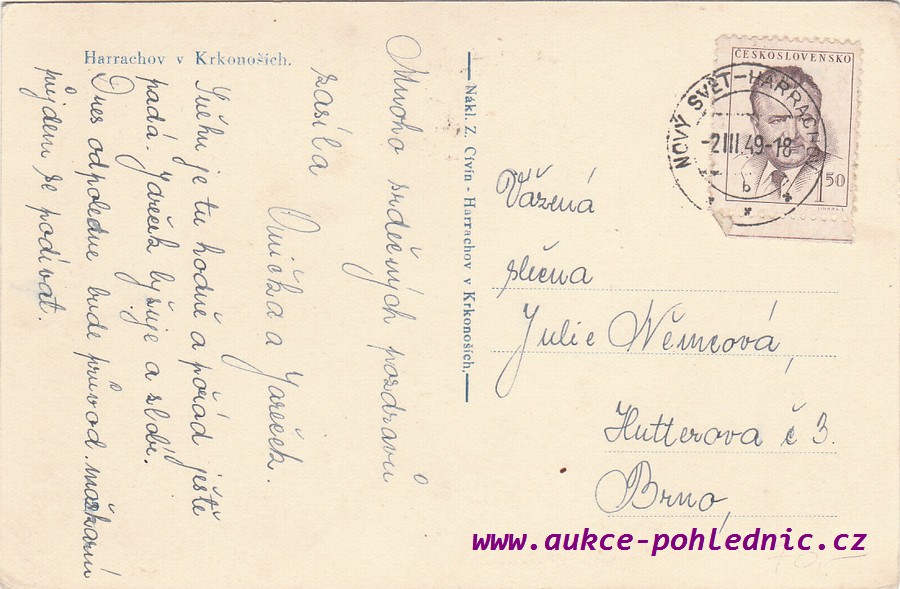 Harrachov v Krkonoších.
Mnoho srdečných pozdravů
zasílá
Anička a Jareček.
Sněhu je tu hodně a pořád ještě
padá. Jareček lyžuje a slobí.
Dnes odpoledne bude průvod maškarní
půjdem se podívat.
Nákl. Z. Civín - Harrachov v Krkonoších.
ČESKOSLOVENSKO
1 50
NOVÝ SVĚT-HARRACHOV
-2 III 49-18
b
Vážená
slečna
Julie Němcová,
Hutterova č 3.
Brno,
www.aukce-pohlednic.cz